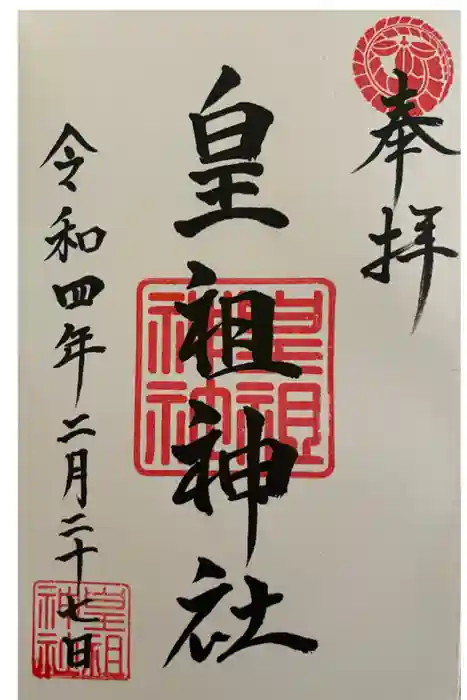 奉拝
皇祖神社
皇祖神社
令和四年二月二十七日
皇祖神社